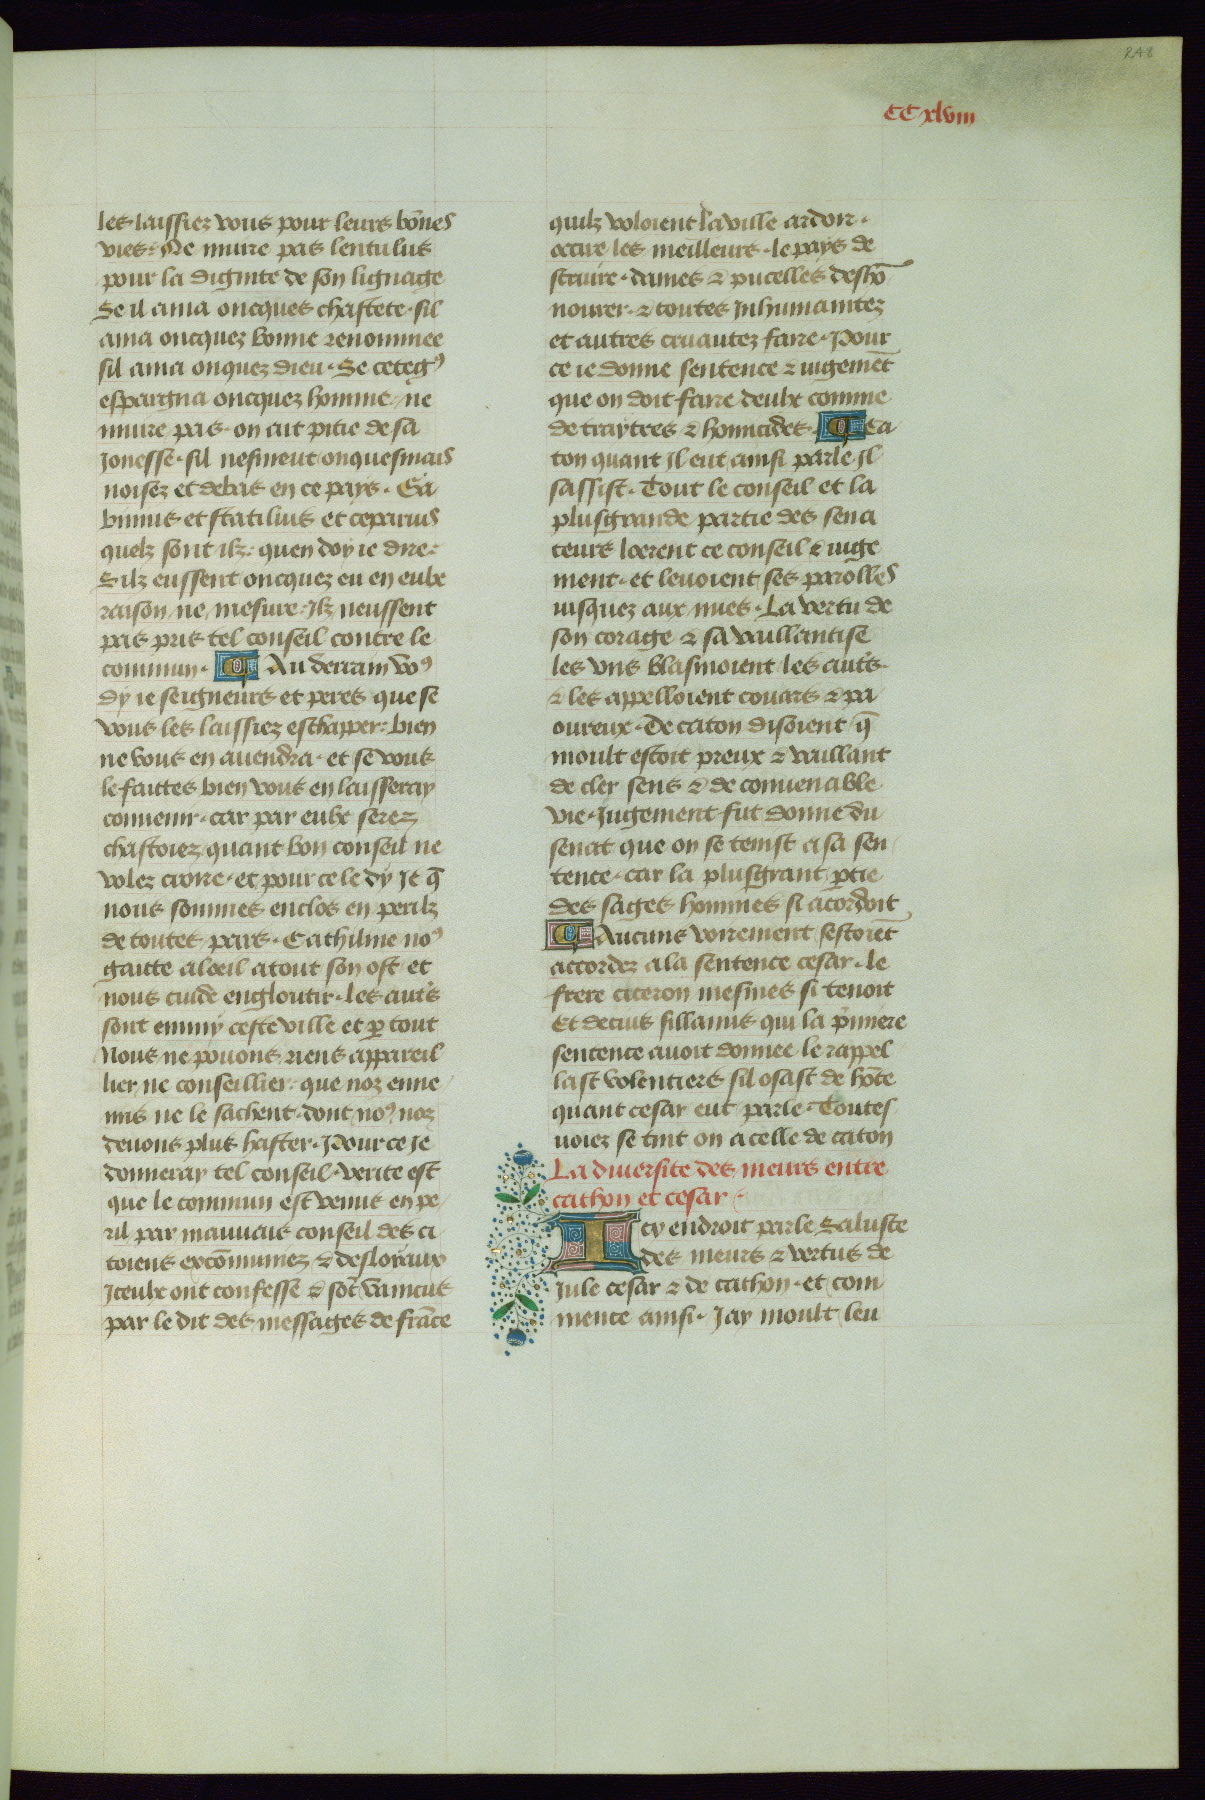 248
CCxlviii
les laissiez vous pour leurs bōnes
vies. Ne muire pas lentulus
pour la dignite de son lignage
Se il ama oncques chastete. sil
ama oncquez bonne renommee
sil ama onquez dieu. Se ceteg⁹
espargna oncquez homme ne
muire pas. on eut pitie de sa
Jonesse. sil nesmeut onquesmais
noisez et debas en ce pays. Ga
binius et statilius et ceparius
quelz sont ilz. quen doy ie dire.
Silz eussent oncquez eu en eulx
raison ne mesure. Ilz neussent
pas pris tel conseil contre le
commun. ¶ Au derrain vo⁹
dy ie seigneurs et peres que se
vous les laissiez eschapper. bien
ne vous en auendra. et se vous
le faittes bien vous en laisseray
conuenir. car par eulx serez
chastoiez quant bon conseil ne
volez croire. et pour ce le dy Je q̄
nous sommes enclos en perilz
de toutes pars. Cathiline no⁹
gaitte aloeil atout son ost et
nous cuide engloutir. les aut̄s
sont emmy ceste ville et ꝑ tout
Nous ne pouons riens appareil
lier ne conseillier. que noz enne
mis ne le sachent. dont no⁹ noz
deuons plus haster. Pour ce Je
donneray tel conseil. verite est
que le commun est venus en pe
ril par mauuais conseil des ci
toiens excōmuniez & desloyaux
Iceulx ont confesse & sōt vaincus
par le dit des messages de frāce
quilz voloient la ville ardoir.
occire les meilleurs. le pays de
struire. dames & pucelles deshō
nourer. & toutes Inhumanitez
et autres cruautez faire. Pour
ce ie donne sentence & iugemēt
que on doit faire deulx comme
de traytres & homicides. ¶ Ca
ton quant Il eut ainsi parle Il
sassist. Tout le conseil et la
plusgrande partie des sena
teurs loerent ce conseil & iuge
ment. et leuoient ses parolles
iusquez aux nues. La vertu de
son corage & sa vaillantise
les vns blasmoient les aut̄s.
& les appelloient couars & pa
oureux. De caton disoient q̄
moult estoit preux & vaillant
de cler sens & de conuenable
vie. Jugement fut donne du
senat que on se tenist a sa sen
tence. car la plusgrant ꝑtie
des sages hommes si acordoit
¶ Aucuns voirement sestoiēt
accordez a la sentence cesar. le
frere ciceron mesmes si tenoit
Et decius sillanus qui la p̄miere
sentence auoit donnee le rappel
last volentiers sil osast de hōte
quant cesar eut parle. Toutes
uoiez se tint on a celle de caton
La diuersite des meurs entre
cathon et cesar
Icy endroit parle Saluste
des meurs & vertus de
Jule cesar & de cathon. et com
mence ainsi. Jay moult leu